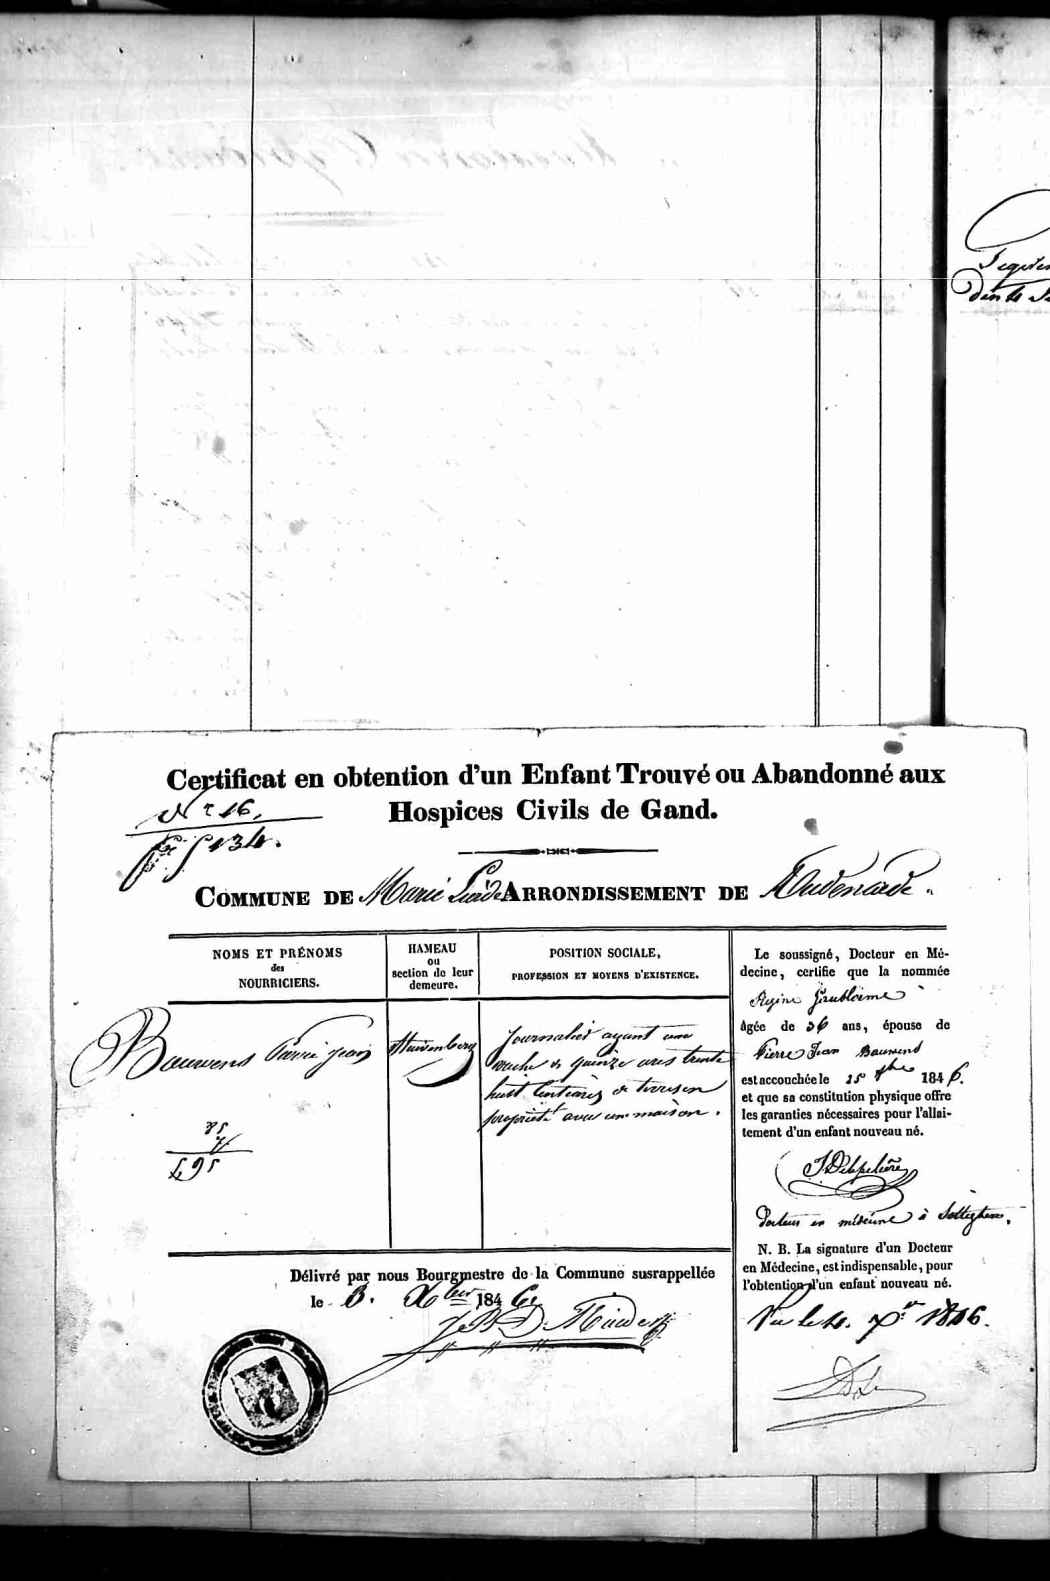 Certificat en obtention d'un Enfant Trouvé ou Abandonné aux
Hospices Civils de Gand.
N° 16.
f° 134.
COMMUNE DE Marie Lierde ARRONDISSEMENT DE Audenarde.
NOMS ET PRÉNOMS
des
NOURRICIERS.
HAMEAU
ou
section de leur
demeure.
POSITION SOCIALE,
PROFESSION ET MOYENS D'EXISTENCE.
Bauwens Pierre Jean
journalier ayant une
vache & quinze ares trente
huit centiares de terre en
propriété avec une maison.
85
495
Le soussigné, Docteur en Mé-
decine, certifie que la nommée
Regine
âgée de 36 ans, épouse de
Pierre Jean Bauwens
est accouchée le 25 9bre 1846.
et que sa constitution physique offre
les garanties nécessaires pour l'allai-
tement d'un enfant nouveau né.
Docteur en médecine à Sotteghem.
N. B. La signature d'un Docteur
en Médecine, est indispensable, pour
l'obtention d'un enfant nouveau né.
Délivré par nous Bourgmestre de la Commune susrappellée
le 3. Xber 1846
Vu le 4. Xr 1846.